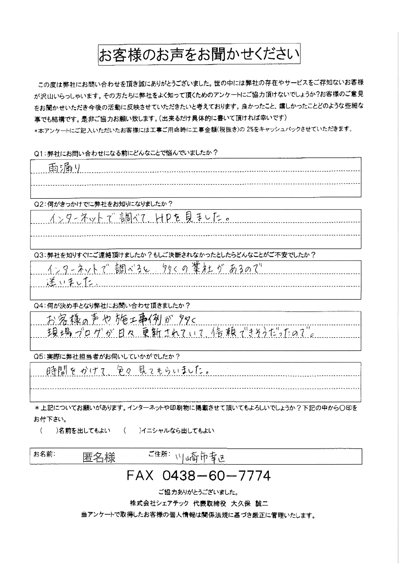 お客様のお声をお聞かせください
この度は弊社にお問い合わせを頂き誠にありがとうございました。世の中には弊社の存在やサービスをご存知ないお客様
が沢山いらっしゃいます。その方たちに弊社をよく知って頂くためのアンケートにご協力頂けないでしょうか?お客様のご意見
をお聞かせいただき今後の活動に反映させていただきたいと考えております。良かったこと、嬉しかったことどのような些細な
事でも結構です。是非ご協力お願い致します。(出来るだけ具体的に書いて頂ければ幸いです)
*本アンケートにご記入いただいたお客様には工事ご用命時に工事金額(税抜き)の2%をキャッシュバックさせていただきます。
Q1:弊社にお問い合わせになる前にどんなことで悩んでいましたか?
雨漏り
Q2:何がきっかけでに弊社をお知りになりましたか?
インターネットで調べて、HPを見ました。
Q3:弊社を知りすぐにご連絡頂けましたか?もしご決断されなかったとしたらどんなことがご不安でしたか?
インターネットで調べると、多くの業社があるので
迷いました。
Q4:何が決め手となり弊社にお問い合わせ頂きましたか?
お客様の声や施工事例が多く
現場ブログが日々更新されていて、信頼できそうだったので。
Q5:実際に弊社担当者がお伺いしていかがでしたか?
時間をかけて、色々見てもらいました。
*上記についてお願いがあります。インターネットや印刷物に掲載させて頂いてもよろしいでしょうか?下記の中から〇印を
お付下さい。
( )名前を出してもよい ( )イニシャルなら出してもよい
お名前: 匿名様 ご住所: 川崎市幸区
FAX 0438-60-7774
ご協力ありがとうございました。
株式会社シェアテック 代表取締役 大久保 誠二
当アンケートで取得したお客様の個人情報は関係法規に基づき厳正に管理いたします。